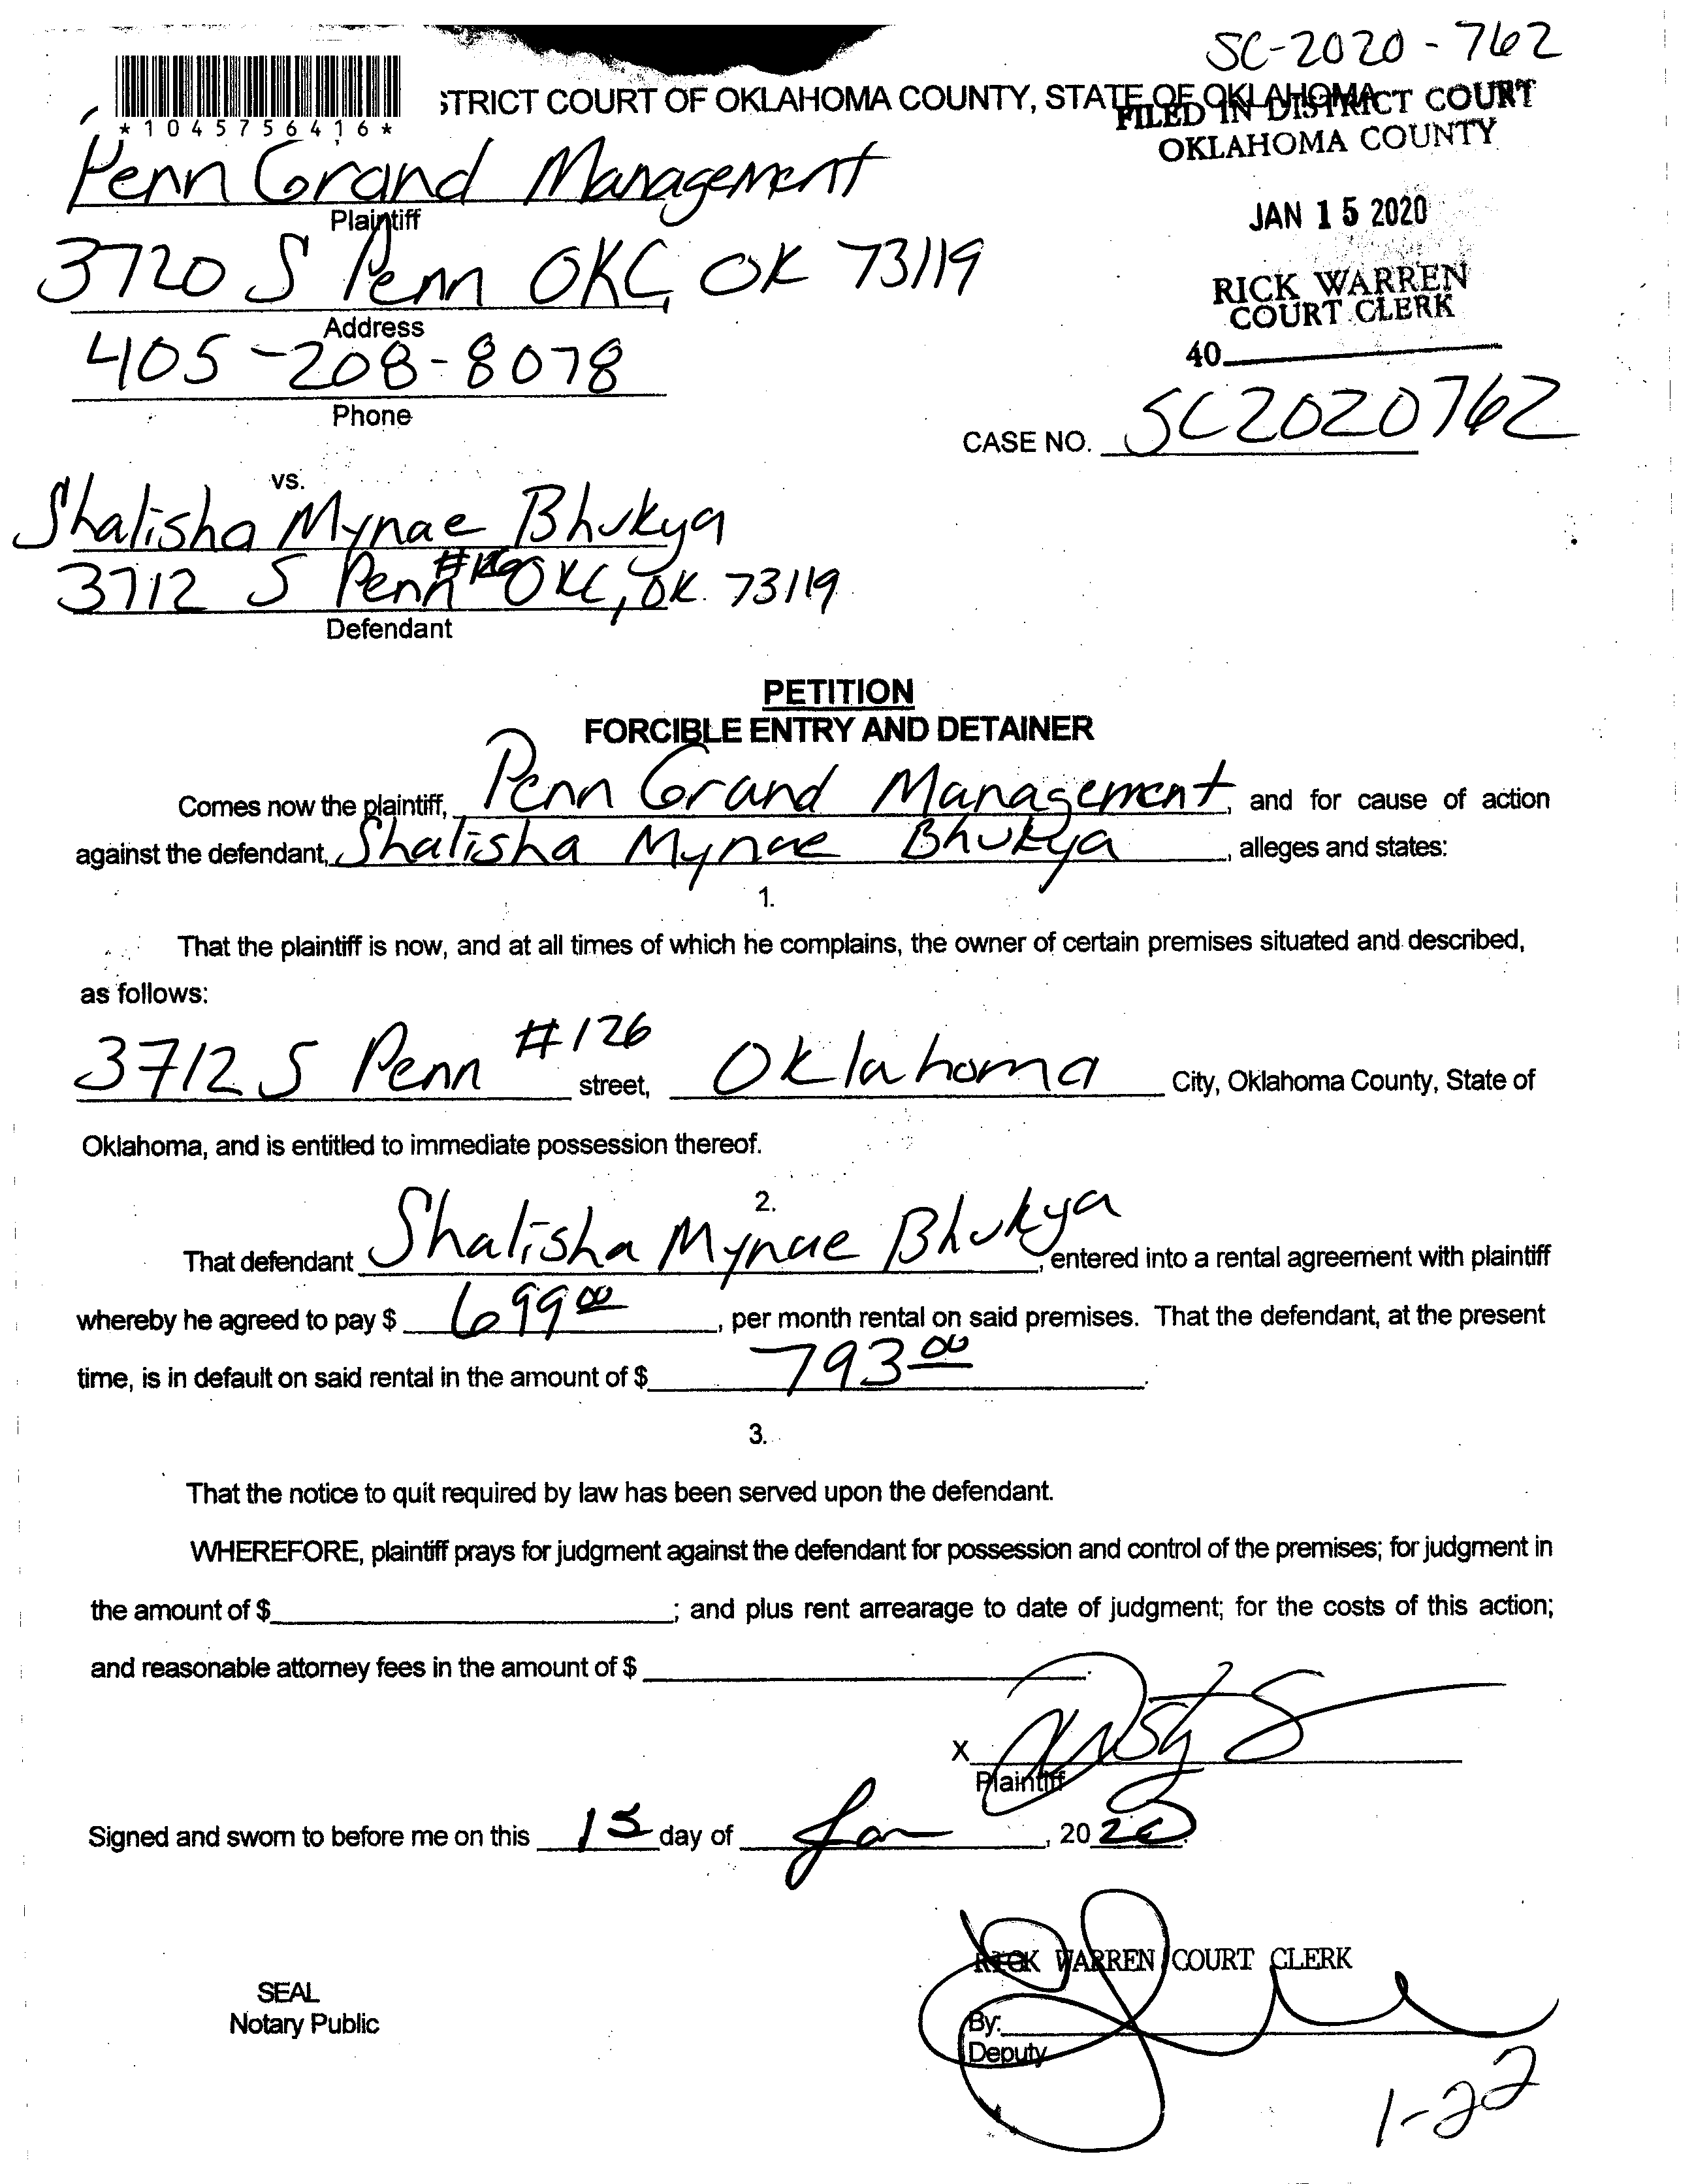 SC-2020-762
STRICT COURT OF OKLAHOMA COUNTY, STATE OF OKLAHOMA
FILED IN DISTRICT COURT
OKLAHOMA COUNTY
*1045756416*
JAN 15 2020
RICK WARREN
COURT CLERK
40
Penn Grand Management
Plaintiff
3720 S Penn OKC, OK 73119
Address
405-208-8078
Phone
CASE NO. SC2020762
vs.
Shalisha Mynae Bhukya
3712 S Penn #126 OKC, OK. 73119
Defendant
PETITION
FORCIBLE ENTRY AND DETAINER
Comes now the plaintiff, Penn Grand Management, and for cause of action
against the defendant, Shalisha Mynae Bhukya, alleges and states:
1.
That the plaintiff is now, and at all times of which he complains, the owner of certain premises situated and described,
as follows:
3712 S Penn #126 street, Oklahoma City, Oklahoma County, State of
Oklahoma, and is entitled to immediate possession thereof.
2.
That defendant Shalisha Mynae Bhukya, entered into a rental agreement with plaintiff
whereby he agreed to pay $ 699.00, per month rental on said premises. That the defendant, at the present
time, is in default on said rental in the amount of $ 793.00.
3.
That the notice to quit required by law has been served upon the defendant.
WHEREFORE, plaintiff prays for judgment against the defendant for possession and control of the premises; for judgment in
the amount of $ ; and plus rent arrearage to date of judgment; for the costs of this action;
and reasonable attorney fees in the amount of $ .
X
Plaintiff
Signed and sworn to before me on this 15 day of Jan, 2020.
RICK WARREN COURT CLERK
SEAL
Notary Public
By:
Deputy
1-22